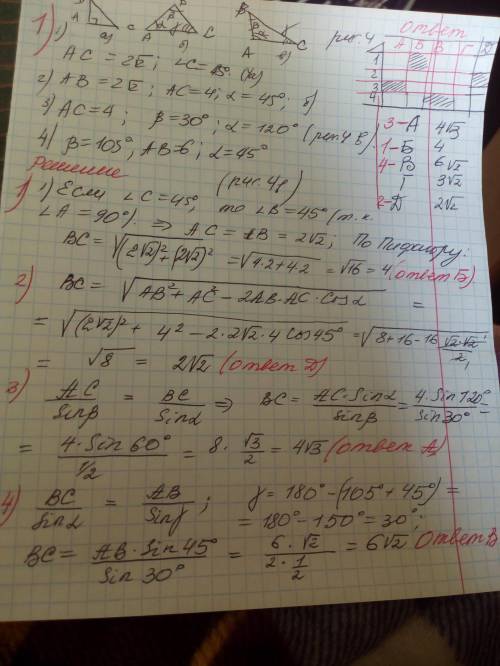 1) 1) A C а) A C б) B A C в) рис. 4 ответ
А Б В Г Д
1
2
3
4
AC = 2√2; ∠C = 45° (а)
2) AB = 2√2; AC = 4; α = 45°; б)
3) AC = 4; β = 30°; α = 120° (рис. 4 в)
4) β = 105°, AB = 6; α = 45° (рис. 4г)
3 — А 4√3
1 — Б 4
4 — В 6√2
Г 3√2
2 — Д 2√2
Решение
1) 1) Если ∠C = 45°, то ∠B = 45° (т.к.
∠A = 90°) ⇒ AC = AB = 2√2; По Пифагору:
BC = √((2√2)² + (2√2)²) = √(4·2 + 4·2) = √16 = 4 (ответ Б)
2) BC = √(AB² + AC² − 2AB·AC·Cosα) =
= √((2√2)² + 4² − 2·2√2·4 Cos45°) = √(8+16−16 √2·√2/2)
= √8 = 2√2 (ответ Д)
3) AC/Sinβ = BC/Sinα ⇒ BC = AC·Sinα/Sinβ = 4·Sin120°/Sin30° =
= 4·Sin60°/½ = 8·√3/2 = 4√3 (ответ А)
4) BC/Sinα = AB/Sinγ; γ = 180° − (105° + 45°) =
= 180° − 150° = 30°;
BC = AB·Sin45°/Sin30° = 6·√2/2·½ = 6√2 Ответ В